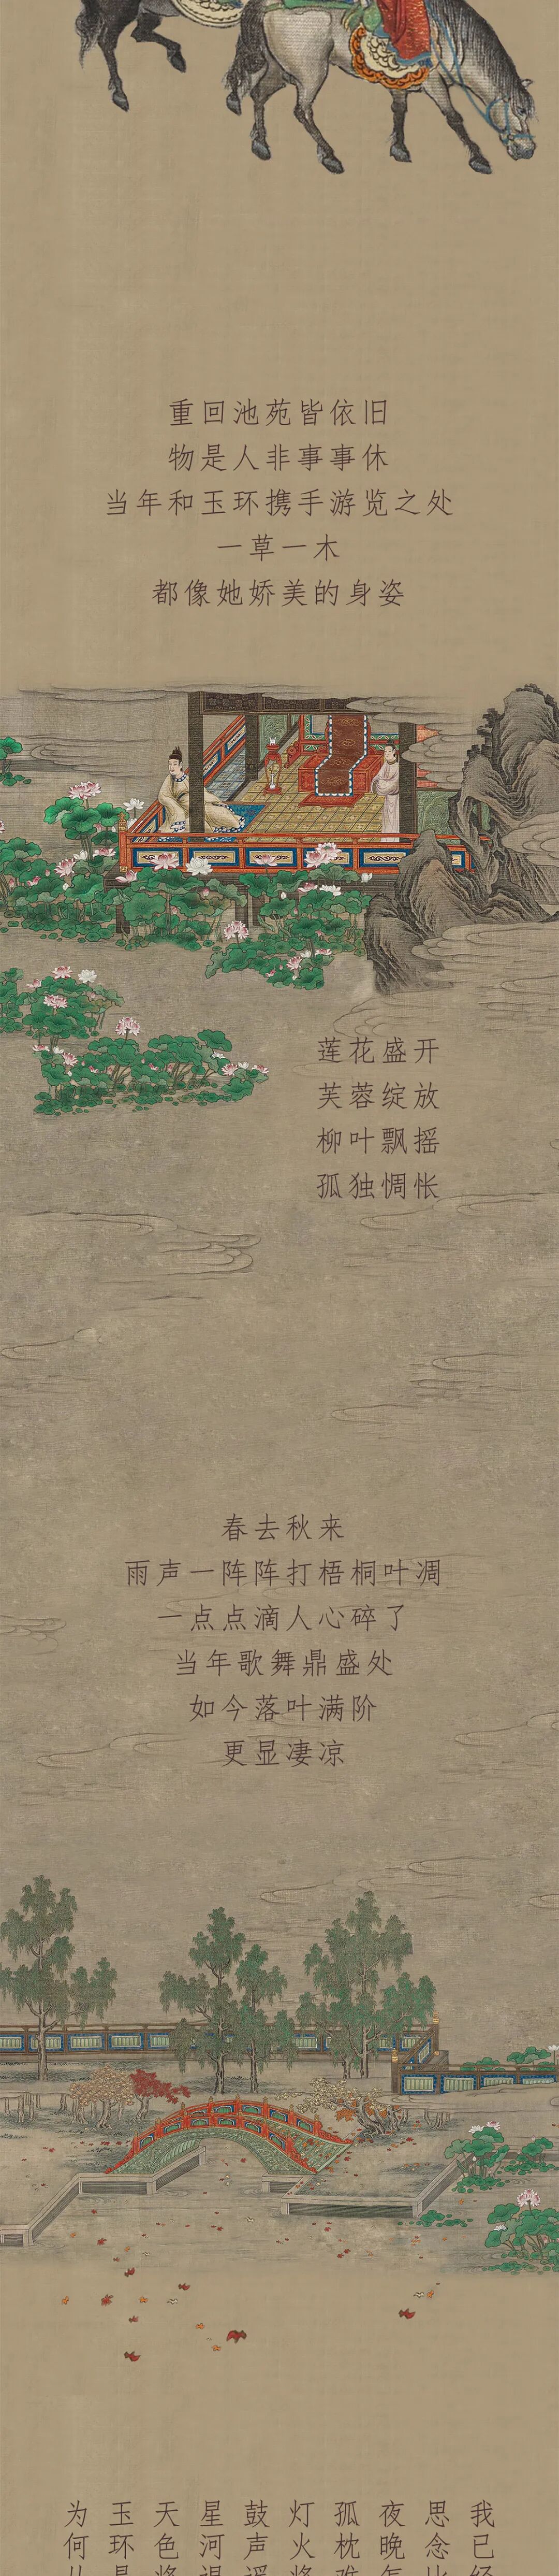 重回池苑皆依旧
物是人非事事休
当年和玉环携手游览之处
一草一木
都像她娇美的身姿
莲花盛开
芙蓉绽放
柳叶飘摇
孤独惆怅
春去秋来
雨声一阵阵打梧桐叶凋
一点点滴人心碎了
当年歌舞鼎盛处
如今落叶满阶
更显凄凉
我已
思念
夜晚
孤枕
灯火
鼓声
星河
天色
玉环
为何